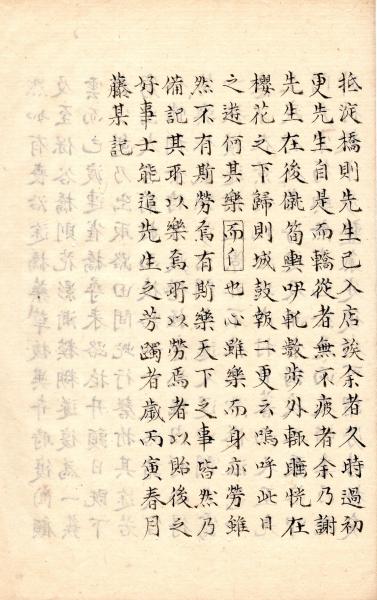 抵淀橋則先生已入店竢余者久時過初
更先生自是而轎從者無不疲者余乃謝
先生在後僦筍輿咿軋數步外輙睡恍在
櫻花之下歸則城鼓報二更云嗚呼此日
之遊何其樂而
也心雖樂而身亦勞雖
然不有斯勞焉有斯樂天下之事皆然乃
備記其所以樂焉所以勞焉者以貽後之
好事士能追先生之芳躅者歲丙寅春月
藤某記